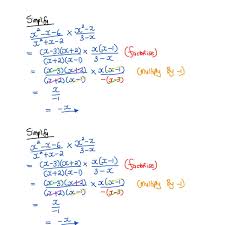 Simplify
x²-x-6/x²+x-2 × x²-x/3-x
= (x-3)(x+2)/(x+2)(x-1) × x(x-1)/3-x (factorise)
= (x-3)(x+2)/(x+2)(x-1) × x(x-1)/-(x-3) (Multiply By -1)
= x/-1
= -x
Simplify
x²-x-6/x²+x-2 × x²-x/3-x
= (x-3)(x+2)/(x+2)(x-1) × x(x-1)/3-x (factorise)
= (x-3)(x+2)/(x+2)(x-1) × x(x-1)/-(x-3) (Multiply By -1)
= x/-1
= -x